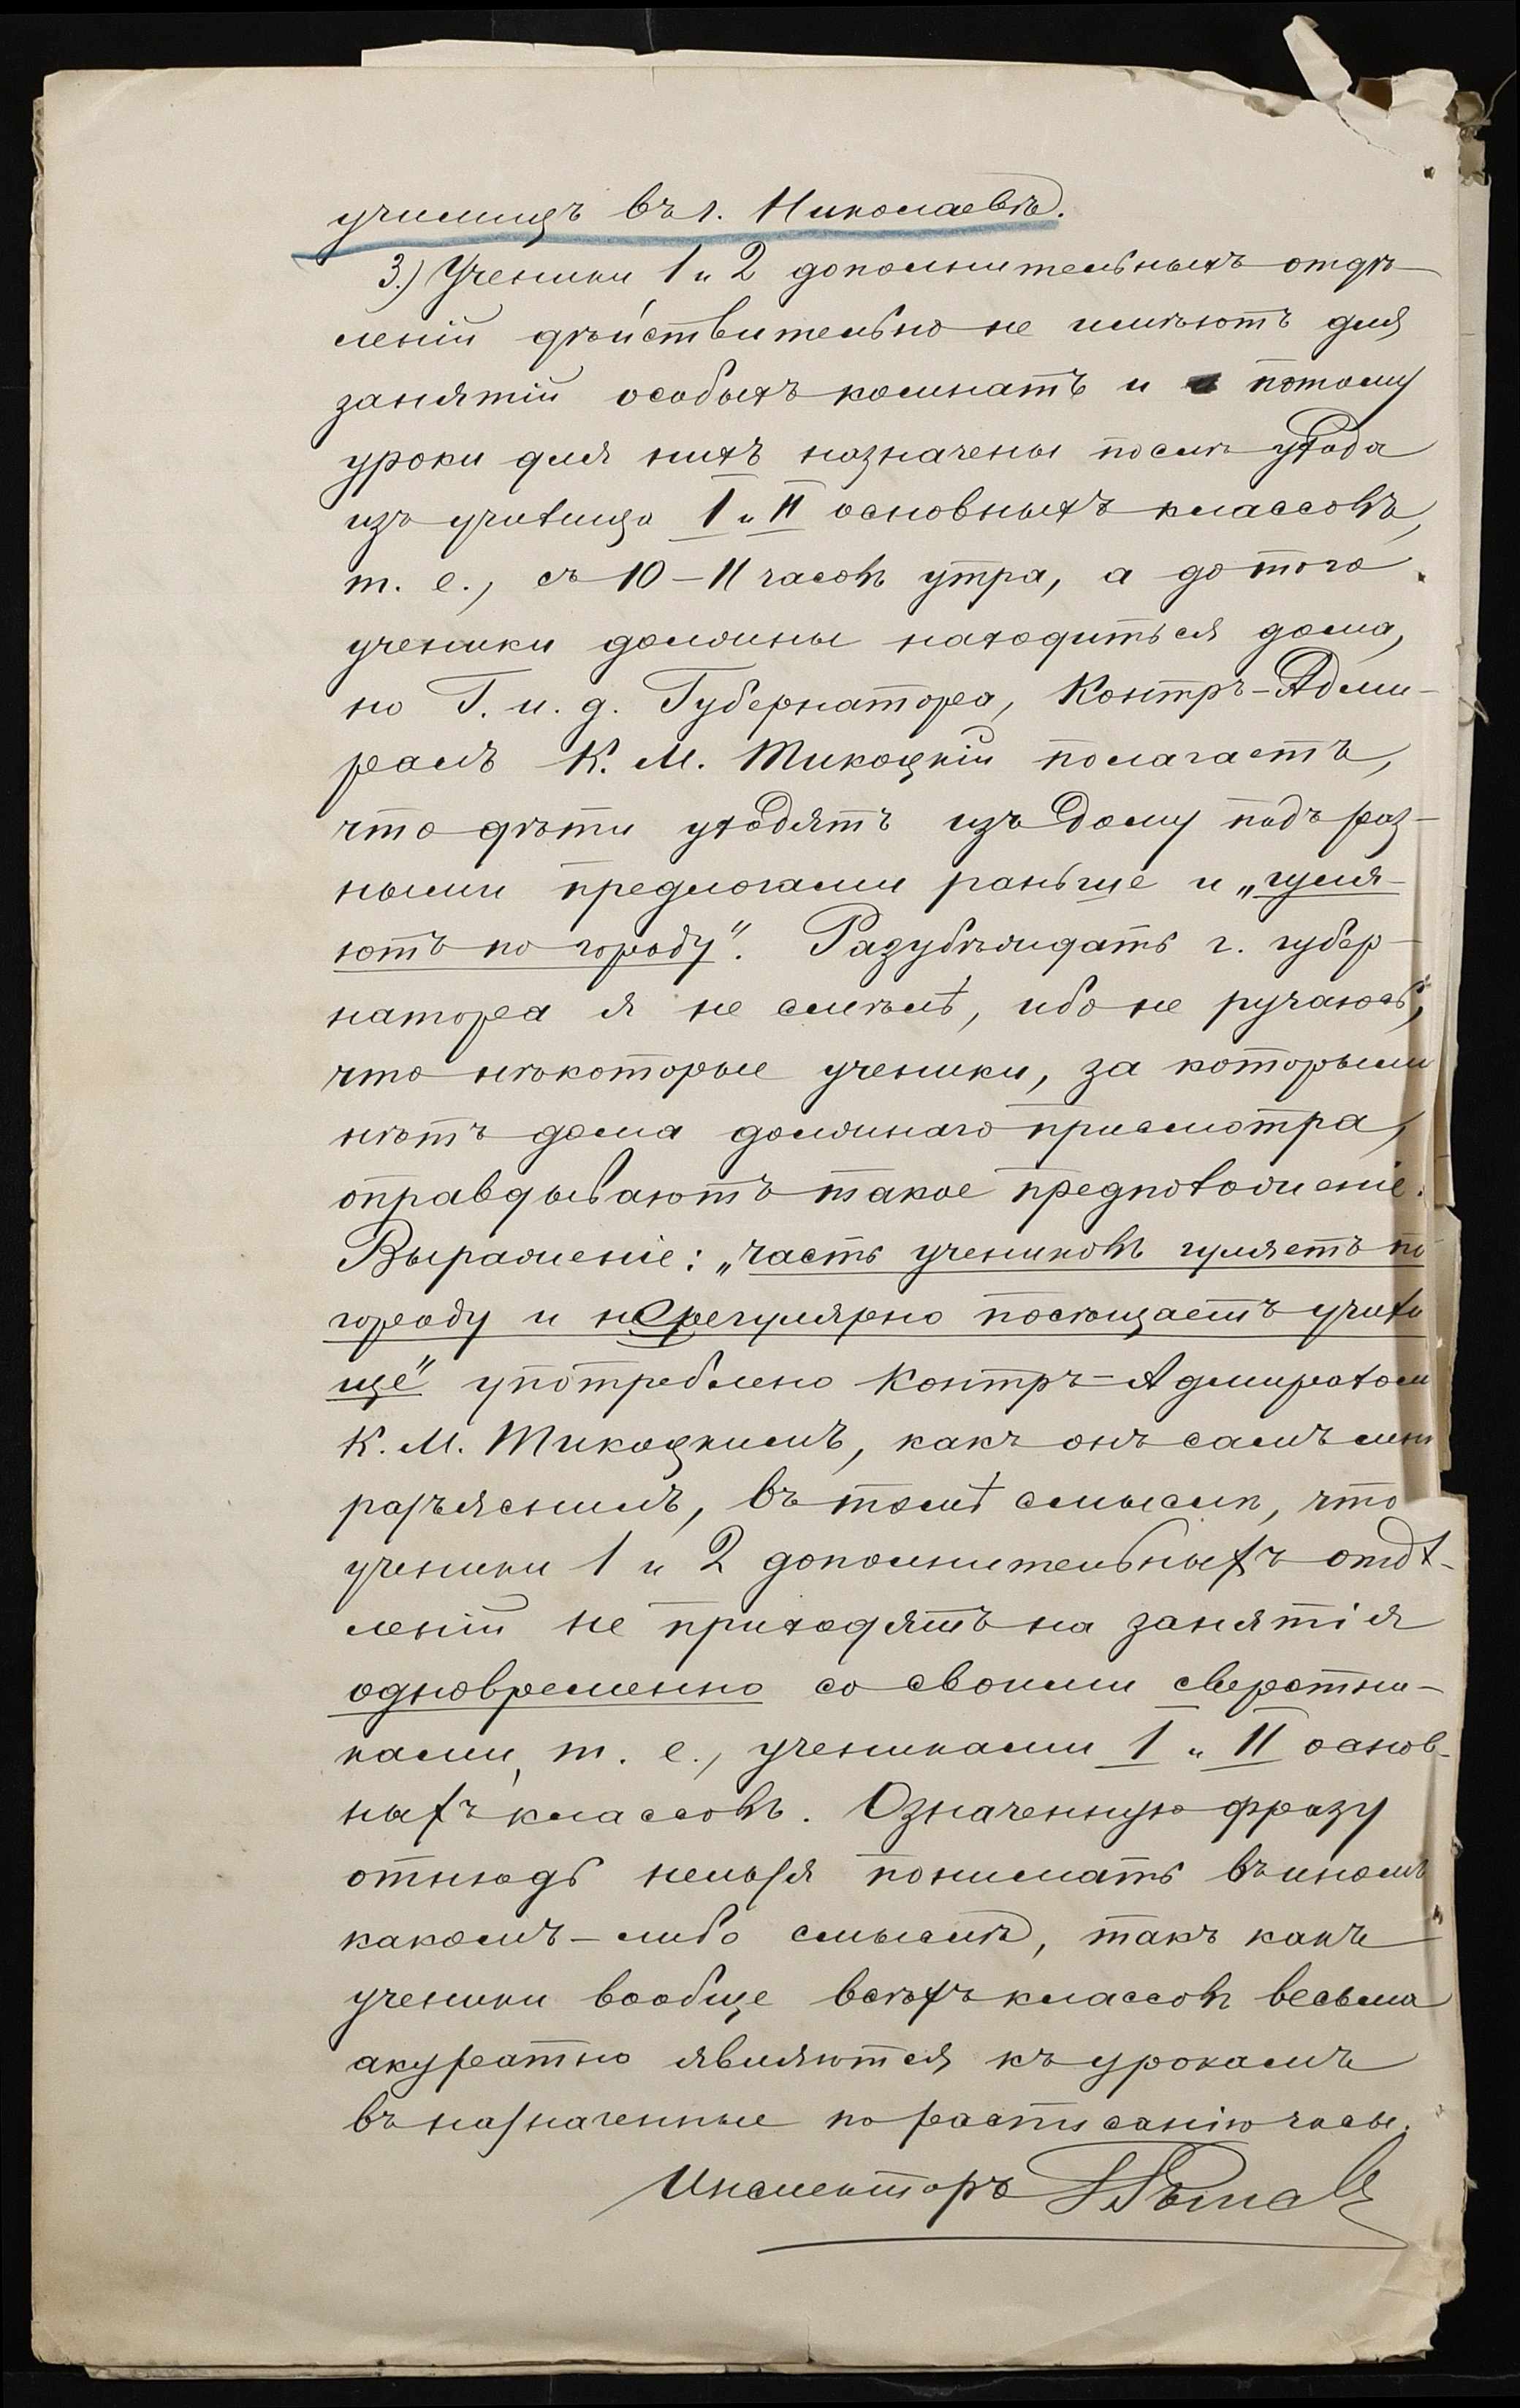 училищъ въ г. Николаевѣ.
3.) Ученики 1 и 2 дополнительныхъ отдѣ-
леній дѣйствительно не имѣютъ для
занятій особыхъ комнатъ и потому
уроки для нихъ назначены послѣ ухода
изъ училища I и II основныхъ классовъ,
т. е., съ 10–11 часовъ утра, а до того
ученики должны находиться дома,
но Г. и. д. Губернатора, Контръ-Адми-
ралъ К. М. Тикоцкій полагаетъ,
что дѣти уходятъ изъ дому подъ раз-
ными предлогами раньше и „гуля-
ютъ по городу". Разубѣждать г. губер-
натора я не смѣлъ, ибо не ручаюсь,
что нѣкоторые ученики, за которыми
нѣтъ дома должнаго присмотра,
оправдываютъ такое предположеніе.
Выраженіе: „часть учениковъ гуляетъ по
городу и нерегулярно посѣщаетъ учили
ще" употреблено Контръ-Адмираломъ
К. М. Тикоцкимъ, какъ онъ самъ мнѣ
разъяснилъ, въ томъ смыслѣ, что
ученики 1 и 2 дополнительныхъ отдѣ-
леній не приходятъ на занятія
одновременно со своими сверстни-
ками, т. е., учениками I и II основ-
ныхъ классовъ. Означенную фразу
отнюдь нельзя понимать въ иномъ
какомъ-либо смыслѣ, такъ какъ
ученики вообще всѣхъ классовъ весьма
акуратно являются къ урокамъ
въ назначенные по расписанію часы.
Инспекторъ